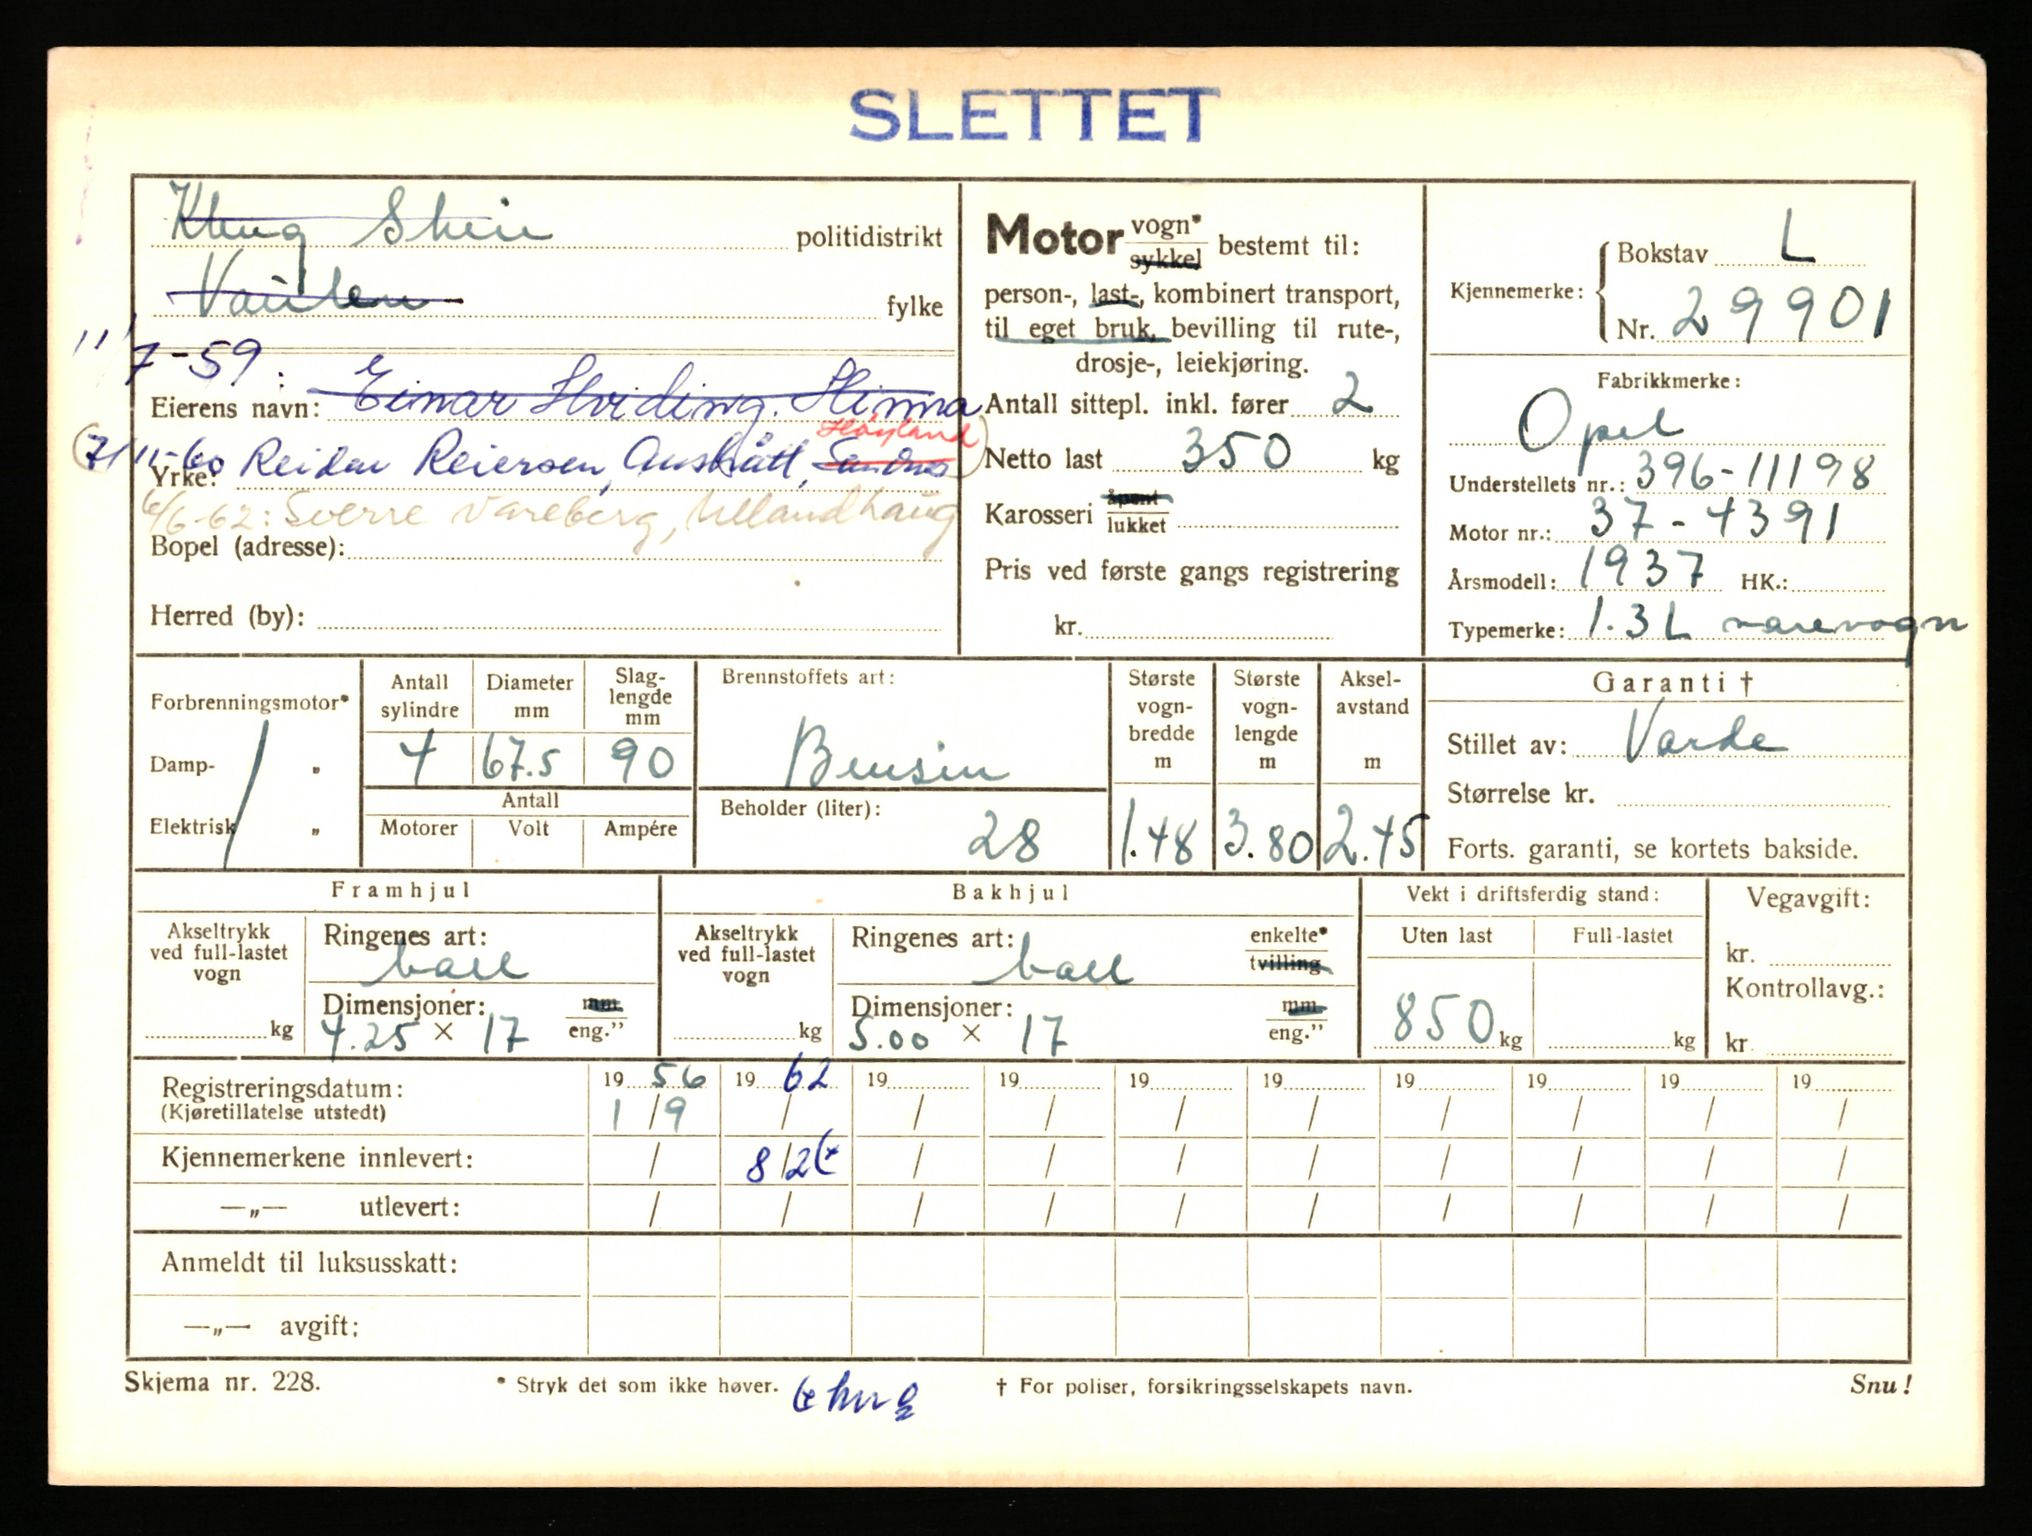 SLETTET
politidistrikt
Vaulen fylke
Motor vogn* sykkel bestemt til:
person-, last-, kombinert transport,
til eget bruk, bevilling til rute-,
drosje-, leiekjøring.
Kjennemerke: Bokstav L
Nr. 29901
11/7-59:
Eierens navn: Einar Hviding. Hinna
7/11-60 Reidar Reiersen, Austrått, Sandnes Høyland
Yrke:
6/6-62: Sverre Vareberg, Ullandhaug
Bopel (adresse):
Herred (by):
Antall sittepl. inkl. fører 2
Netto last 350 kg
Karosseri åpent lukket
Pris ved første gangs registrering
kr.
Fabrikkmerke:
Opel
Understellets nr.: 396-11198
Motor nr.: 37-4391
Årsmodell: 1937 HK.:
Typemerke: 1.3 L varevogn
Forbrenningsmotor*
Damp- "
Elektrisk "
Antall sylindre 4
Diameter mm 67.5
Slag-lengde mm 90
Antall
Motorer Volt Ampére
Brennstoffets art:
Bensin
Beholder (liter):
28
Største vogn-bredde m 1.48
Største vogn-lengde m 3.80
Aksel-avstand m 2.45
Garanti †
Stillet av: Varde
Størrelse kr.
Forts. garanti, se kortets bakside.
Framhjul
Akseltrykk ved full-lastet vogn kg
Ringenes art: ball
Dimensjoner: mm
4.25 × 17 eng."
Bakhjul
Akseltrykk ved full-lastet vogn kg
Ringenes art: ball enkelte* tvilling
Dimensjoner: mm
5.00 × 17 eng."
Vekt i driftsferdig stand:
Uten last Full-lastet
850 kg kg
Vegavgift:
kr.
Kontrollavg.:
kr.
Registreringsdatum: 19 56 19 62 19 19 19 19 19 19 19 19
(Kjøretillatelse utstedt) 1/9 / / / / / / / / /
Kjennemerkene innlevert: / 8/2 / / / / / / / /
—„— utlevert: / / / / / / / / / /
Anmeldt til luksusskatt:
—„— avgift:
Skjema nr. 228. * Stryk det som ikke høver. † For poliser, forsikringsselskapets navn. Snu!